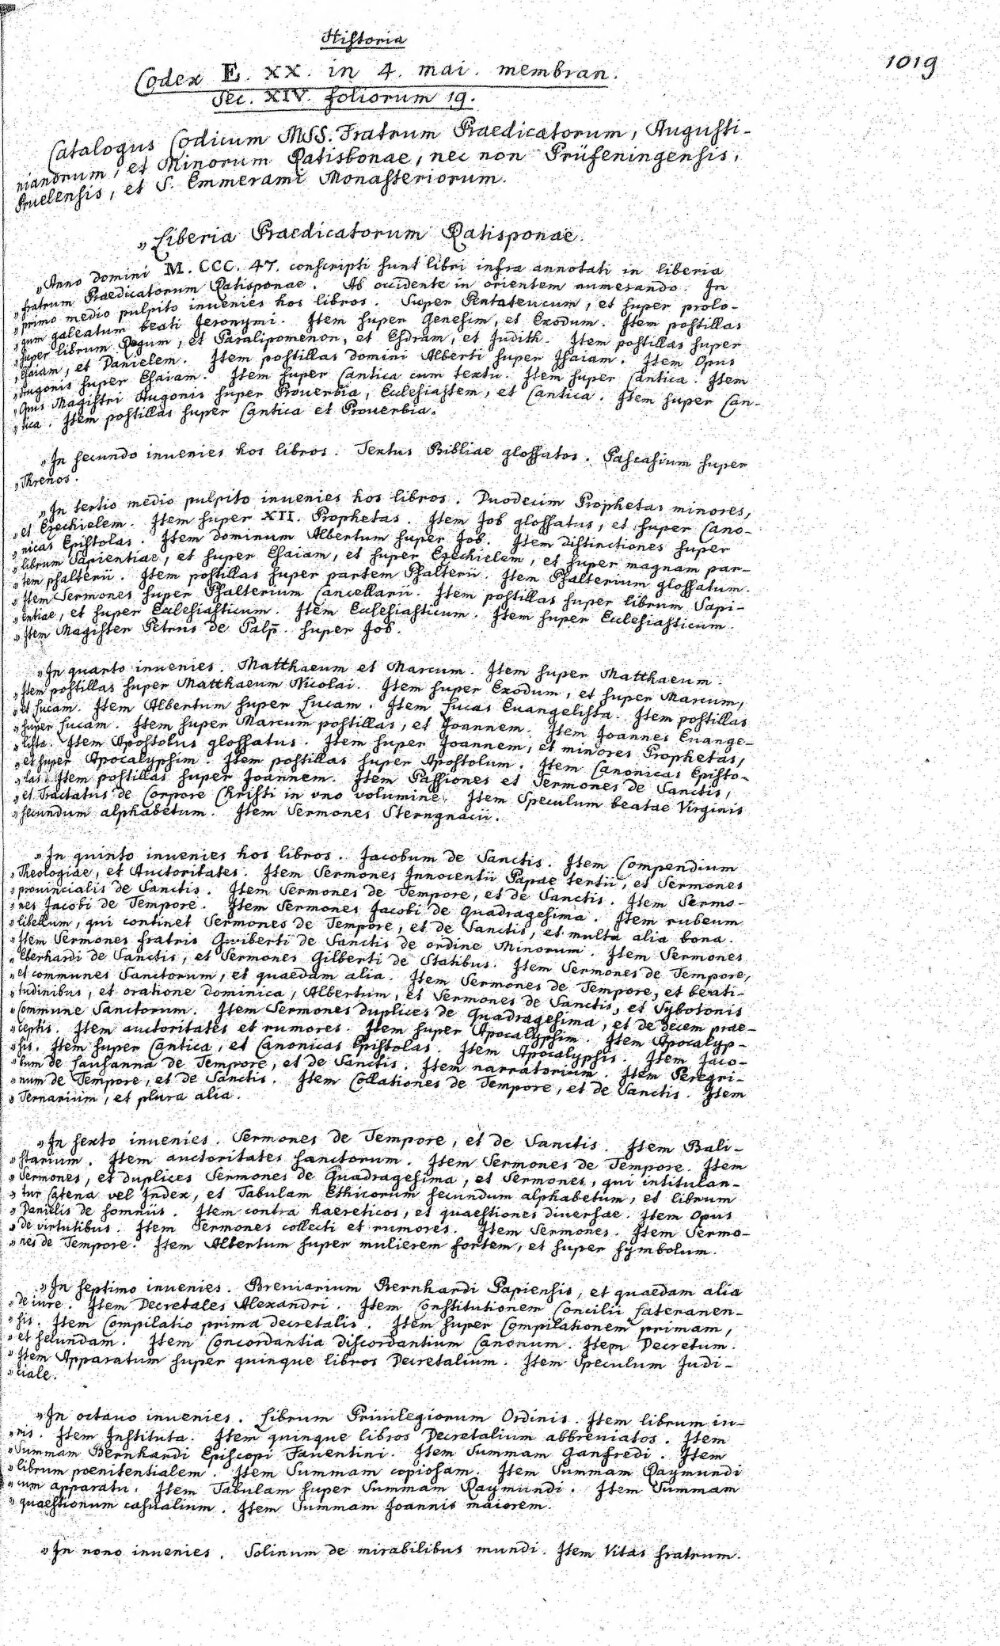 Historia
1019
Codex E. XX. in 4. mai. membran.
Sec. XIV. foliorum 19.
Catalogus Codicum MSS. Fratrum Praedicatorum, Augusti-
nianorum, et Minorum Ratisbonae, nec non Prüfeningensis,
Pruelensis, et S. Emmerami Monasteriorum.
„Liberia Praedicatorum Ratisponae.
„Anno domini M. CCC. 47. conscripti sunt libri infra annotati in liberia
„fratrum Praedicatorum Ratisponae. Ab occidente in orientem numerando. In
„primo medio pulpito inuenies hos libros. Super Pentateucum, et super prolo-
„gum galeatum beati Jeronymi. Item super Genesim, et Exodum. Item postillas
„super librum Regum, et Paralipomenon, et Esdram, et Judith. Item postillas super
„Esaiam, et Danielem. Item postillas domini Alberti super Esaiam. Item Opus
„Hugonis super Esaiam. Item super Cantica cum textu. Item super Cantica. Item
„Opus Magistri Hugonis super Prouerbia, Ecclesiastem, et Cantica. Item super Can-
„tica. Item postillas super Cantica et Prouerbia.
„In secundo inuenies hos libros. Textus Bibliae glossatos. Pascasium super
„Threnos.
„In tertio medio pulpito inuenies hos libros. Duodecim Prophetas minores,
„et Ezechielem. Item super XII. Prophetas. Item Job glossatus, et super Cano-
„nicas Epistolas. Item dominum Albertum super Job. Item distinctiones super
„librum Sapientiae, et super Esaiam, et super Ezechielem, et super magnam par-
„tem psalterii. Item postillas super partem Psalterii. Item Psalterium glossatum.
„Item Sermones super Psalterium Cancellarii. Item postillas super librum Sapi-
„entiae, et super Ecclesiasticum. Item Ecclesiasticum. Item super Ecclesiasticum.
„Item Magister Petrus de Palp̄. super Job.
„In quarto inuenies. Matthaeum et Marcum. Item super Matthaeum.
„Item postillas super Matthaeum Nicolai. Item super Exodum, et super Marcum,
„et Lucam. Item Albertum super Lucam. Item Lucas Euangelista. Item postillas
„super Lucam. Item super Marcum postillas, et Joannem. Item Joannes Euange-
„lista. Item Apostolus glossatus. Item super Joannem, et minores Prophetas,
„et super Apocalypsim. Item postillas super Apostolum. Item Canonicas Episto-
„las. Item postillas super Joannem. Item Passiones et Sermones de Sanctis,
„et Tractatus de Corpore Christi in vno volumine. Item Speculum beatae Virginis
„secundum alphabetum. Item Sermones Sterngnacii.
„In quinto inuenies hos libros. Jacobum de Sanctis. Item Compendium
„Theologiae, et Auctoritates. Item Sermones Innocentii Papae tertii, et Sermones
„prouincialis de Sanctis. Item Sermones de Tempore, et de Sanctis. Item Sermo-
„nes Jacobi de Tempore. Item Sermones Jacobi de Quadragesima. Item rubeum
„libellum, qui continet Sermones de Tempore, et de Sanctis, et multa alia bona.
„Item Sermones fratris Gwiberti de Sanctis de ordine Minorum. Item Sermones
„Eberhardi de Sanctis, et Sermones Gilberti de Statibus. Item Sermones de Tempore,
„et communes Sanctorum, et quaedam alia. Item Sermones de Tempore, et beati-
„tudinibus, et oratione dominica, Albertum, et Sermones de Sanctis, et Sybotonis
„Commune Sanctorum. Item Sermones duplices de Quadragesima, et de decem prae-
„ceptis. Item auctoritates et rumores. Item super Apocalypsim. Item Apocalyp-
„sis. Item super Cantica, et Canonicas Epistolas. Item Apocalypsis. Item Jaco-
„bum de Lausanna de Tempore, et de Sanctis. Item narratorium. Item Peregri-
„num de Tempore, et de Sanctis. Item Collationes de Tempore, et de Sanctis. Item
„Ternarium, et plura alia.
„In sexto inuenies. Sermones de Tempore, et de Sanctis. Item Bali-
„starium. Item auctoritates sanctorum. Item Sermones de Tempore. Item
„Sermones, et duplices Sermones de Quadragesima, et Sermones, qui intitulan-
„tur Catena vel Index, et Tabulam Ethicorum secundum alphabetum, et librum
„Danielis de somniis. Item contra haereticos, et quaestiones diuersae. Item Opus
„de virtutibus. Item Sermones collecti et rumores. Item Sermones. Item Sermo-
„nes de Tempore. Item Albertum super mulierem fortem, et super symbolum.
„In septimo inuenies. Breuiarium Bernhardi Papiensis, et quaedam alia
„de iure. Item Decretales Alexandri. Item Constitutionem Concilii Lateranen-
„sis. Item Compilatio prima decretalis. Item super Compilationem primam,
„et secundam. Item Concordantia discordantium Canonum. Item Decretum.
„Item Apparatum super quinque libros Decretalium. Item Speculum Judi-
„ciale.
„In octauo inuenies. Librum Priuilegiorum Ordinis. Item librum iu-
„ris. Item Instituta. Item quinque libros Decretalium abbreuiatos. Item
„Summam Bernhardi Episcopi Fauentini. Item Summam Ganfredi. Item
„librum poenitentialem. Item Summam copiosam. Item Summam Raymundi
„cum apparatu. Item Tabulam super Summam Raymundi. Item Summam
„quaestionum casualium. Item Summam Joannis maiorem.
„In nono inuenies. Solinum de mirabilibus mundi. Item Vitas fratrum.